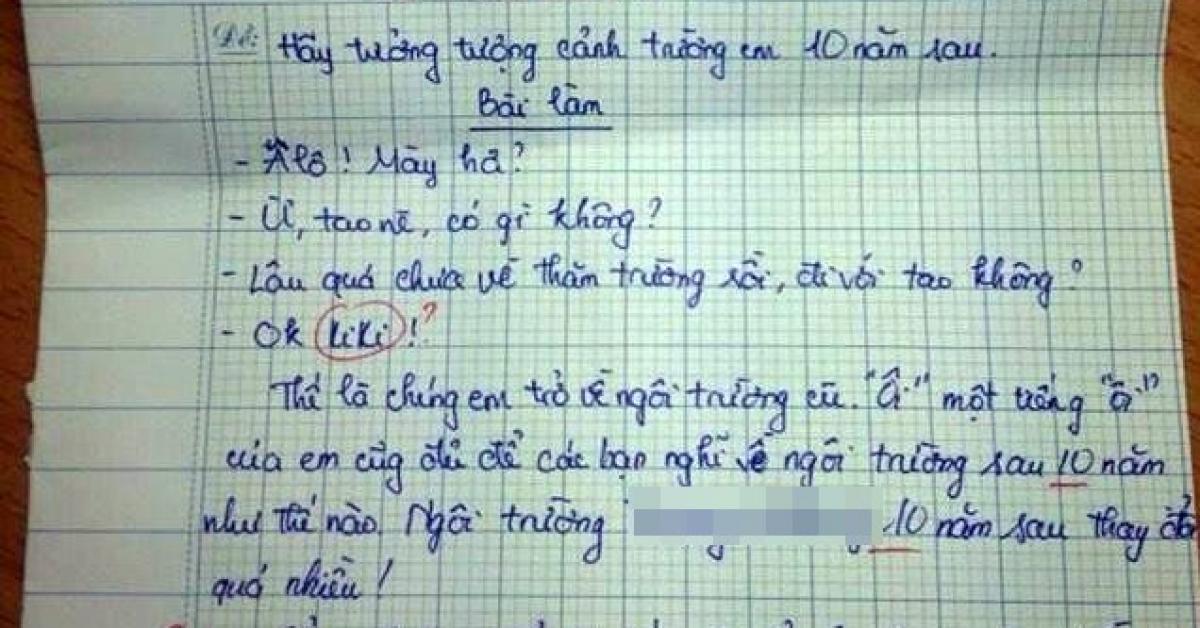 Đề: Hãy tưởng tượng cảnh trường em 10 năm sau.
Bài làm
- Alô! Mày hả?
- Ừ, tao nè, có gì không?
- Lâu quá chưa về thăm trường rồi, đi với tao không?
- Ok kiki!?
Thế là chúng em trở về ngôi trường cũ. "Ồ" một tiếng "ồ"
của em cũng đủ để các bạn nghĩ về ngôi trường sau 10 năm
như thế nào. Ngôi trường 10 năm sau thay đổi
quá nhiều!